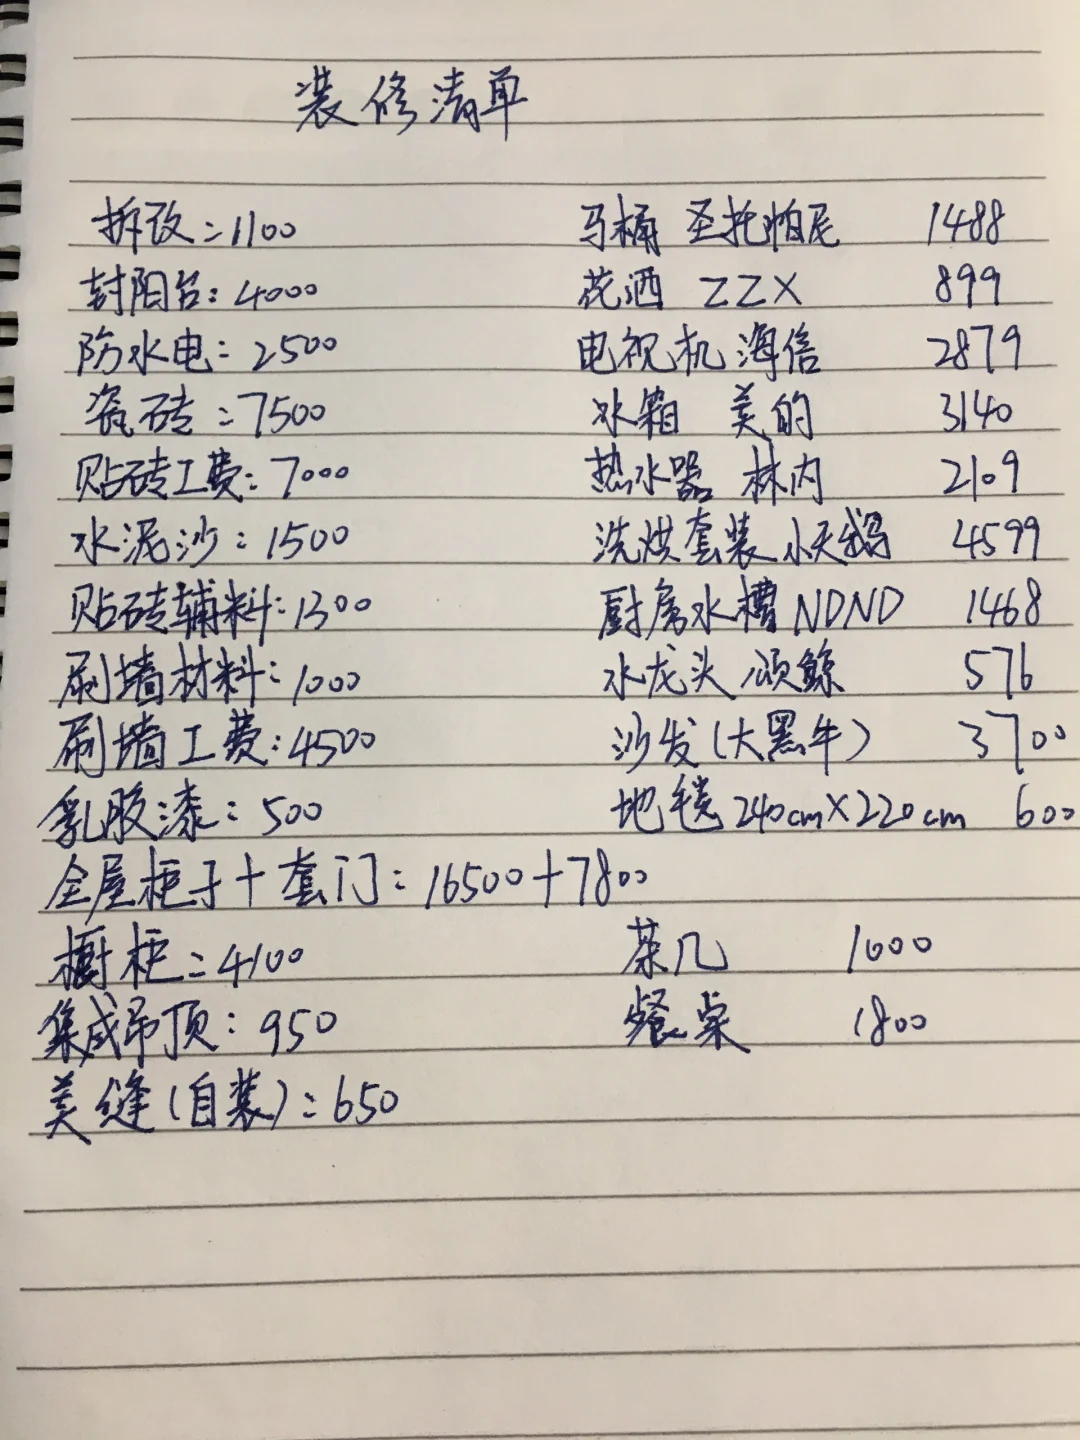 装修清单
拆改:1100
封阳台:4000
防水电:2500
瓷砖:7500
贴砖工费:7000
水泥沙:1500
贴砖辅料:1300
刷墙材料:1000
刷墙工费:4500
乳胶漆:500
全屋柜子+套门:16500+7800
橱柜:4100
集成吊顶:950
美缝(自装):650
马桶 圣托帕尼 1488
花洒 ZZX 899
电视机 海信 2879
冰箱 美的 3140
热水器 林内 2109
洗烘套装 小天鹅 4599
厨房水槽 NDND 1468
水龙头 颂鲸 576
沙发(大黑牛) 3700
地毯 240cm×220cm 600
茶几 1000
餐桌 1800